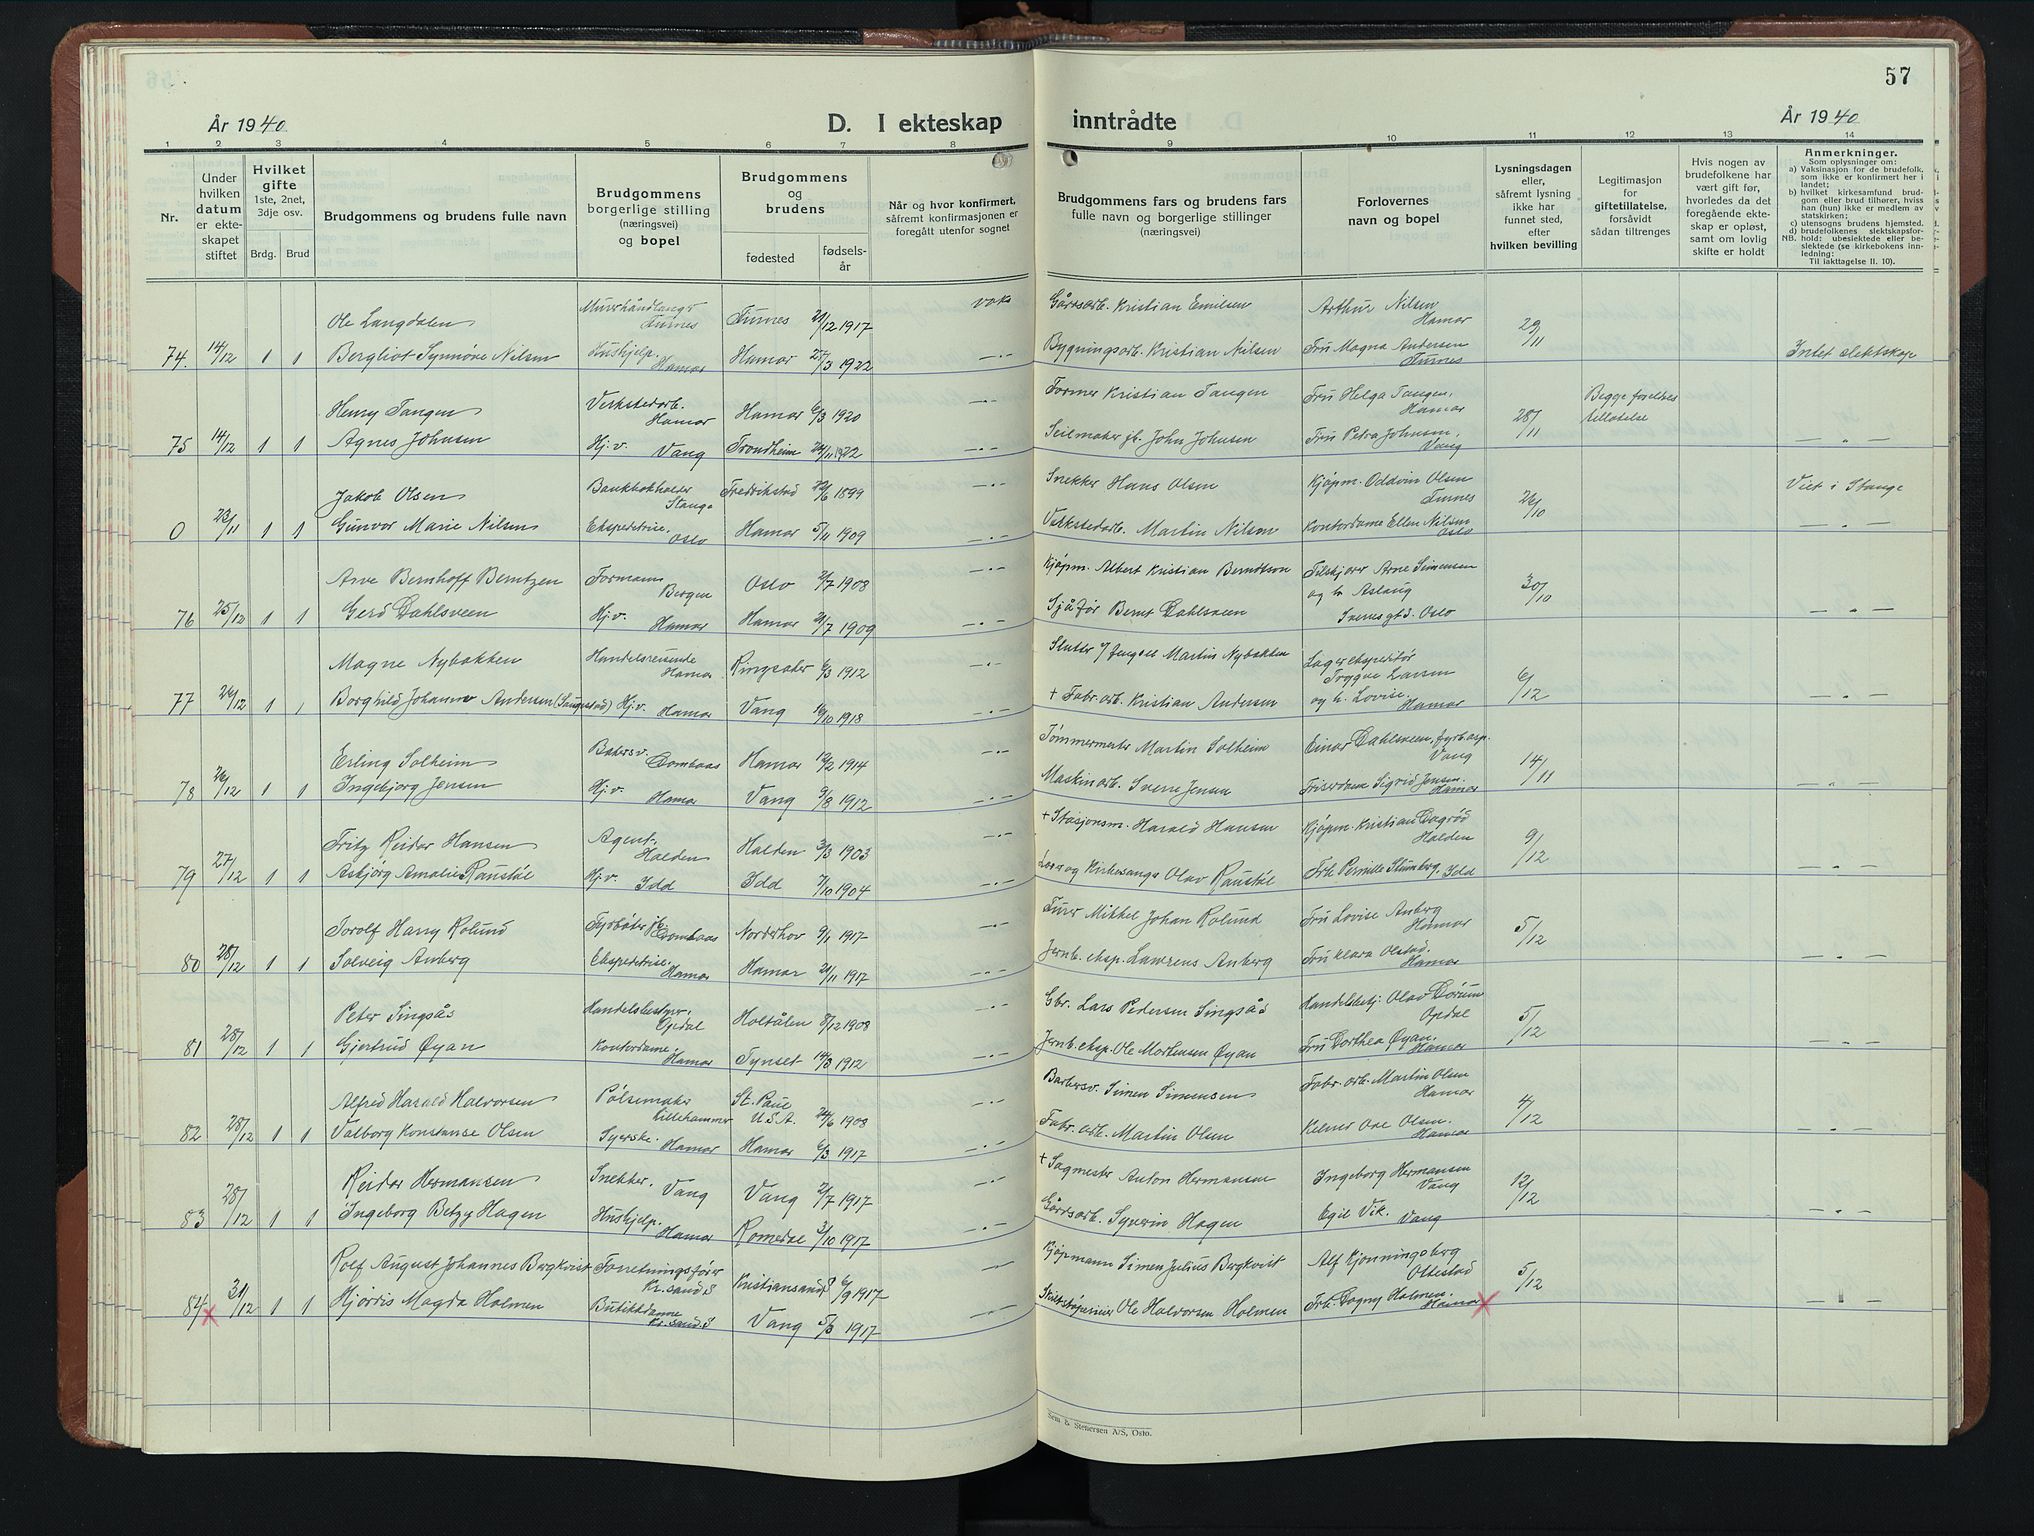 57
År 1940
D. I ekteskap inntrådte
År 1940
1 2 3 4 5 6 7 8 9 10 11 12 13 14
Nr.
Under hvilken datum er ekteskapet stiftet
Hvilket gifte 1ste, 2net, 3dje osv.
Brdg. Brud
Brudgommens og brudens fulle navn
Brudgommens borgerlige stilling (næringsvei) og bopel
Brudgommens og brudens
fødested
fødselsår
Når og hvor konfirmert, såfremt konfirmasjonen er foregått utenfor sognet
Brudgommens fars og brudens fars fulle navn og borgerlige stillinger (næringsvei)
Forlovernes navn og bopel
Lysningsdagen eller, såfremt lysning ikke har funnet sted, efter hvilken bevilling
Legitimasjon for giftetillatelse, forsåvidt sådan tiltrenges
Hvis nogen av brudefolkene har vært gift før, hvorledes da det foregående ekteskap er opløst, samt om lovlig skifte er holdt
Anmerkninger.
Som oplysninger om:
a) Vaksinasjon for de brudefolk. som ikke er konfirmert her i landet;
b) hvilket kirkesamfund brudgom eller brud tilhører, hviss han (hun) ikke er medlem av statskirken;
c) utensogns brudens hjemsted.
d) brudefolkenes slektskapsforhold: ubeslektede eller beslektede (se kirkebokens innledning:
NB. Til iakttagelse II. 10).
Ole Langdalen Murerhåndlanger Furnes Furnes 21/12 1917 vaks Gårdsarb. Kristian Emilsen Arthur Nilsen Hamar
74. 14/12 1 1 Bergliot Synnøve Nilsen Hushjelp. Hamar Hamar 25/3 1922 —"— Bygningsarb. Kristian Nilsen Fru Magna Andersen Furnes 29/11 Intet slektskap
Henry Tangen Verkstedarb. Hamar Hamar 6/3 1920 —"— Former Kristian Tangen Fru Helga Tangen, Hamar Begge foreldres tillatelse
75 14/12 1 1 Agnes Johnsen Hj.v. Vang Trondheim 24/11 1922 —"— Seilmaker John Johnsen Fru Petra Johnsen, Vang 28/11 — " —
Jakob Olsen Bankbokholder Stange Fredrikstad 22/6 1899 —"— Snekker Hans Olsen Kjøpm. Oddvin Olsen Furnes Viet i Stange
0 23/11 1 1 Gunvor Marie Nilsen Ekspeditrise, Oslo Hamar 5/11 1909 —"— Verkstedarb. Martin Nilsen Kontordame Ellen Nilsen Oslo 26/10 — " —
Arve Bernhoff Berntzen Formann Bergen Oslo 2/7 1908 —"— Kjøpm. Albert Kristian Berndtson Arne Simensen og h. Aslaug
76 25/12 1 1 Gerd Dahlsveen Hj.v. Hamar Hamar 21/7 1909 —"— Sjåfør Bernt Dahlsveen Oslo 30/10 — " —
Magne Nybakken Handelsreisende Hamar Ringsaker 6/3 1912 —"— Martin Nybakken Lagerekspeditør Trygve Larsen
77 26/12 1 1 Borghild Johanne Andersen Hj.v. Hamar Vang 16/10 1918 + Fabr.arb. Kristian Andersen og h. Lovise. Hamar 6/12 — " —
Erling Solheim Bakersv. Dombaas Hamar 12/2 1914 —"— Tømmermester Martin Solheim Einar Dahlsveen, Vang
78 26/12 1 1 Ingebjørg Jensen Hj.v. Hamar Vang 9/8 1912 —"— Maskinarb. Sverre Jensen Friserdame Sigrid Jensen. Hamar 14/11 — " —
Fritz Reidar Hansen Agent. Halden Halden 3/3 1903 —"— + Stasjonsm. Harald Hansen Kjøpm. Kristian Dagrød Halden
79 27/12 1 1 Asbjørg Amalie Raustøl Hj.v. Idd Idd 7/10 1904 —"— Lærer og Kirkesanger Olav Raustøl Frk. Pernille Stumberg, Idd 9/12 — " —
Torolf Harry Rolund Fyrbøter Dombaas Norderhov 9/1 1917 —"— Mikkel Johan Rolund Fru Lovise Anberg Hamar
80 28/12 1 1 Solveig Anberg Ekspeditrise. Hamar Hamar 21/11 1917 —"— Jernb. eksp. Lawrens Anberg Fru Klara Olstad. Hamar 5/12 — " —
Peter Singsås Handelsbestyrer, Opdal Holtålen 8/12 1908 —"— Gbr. Lars Pedersen Singsås Handelsbestj. Olav Dørum Opdal
81 28/12 1 1 Gjertrud Øyan Kontordame. Hamar Tynset 14/3 1912 —"— Jernb. eksp. Ole Mortensen Øyan Fru Dorthea Øyan. Hamar 5/12 — " —
Alfred Harald Halvorsen Pølsemaker Lillehammer St. Paul U.S.A. 24/6 1908 —"— Barbersv. Simen Simensen Fabr. arb. Martin Olsen Hamar
82 28/12 1 1 Valborg Konstanse Olsen Syerske. Hamar Hamar 6/3 1917 —"— Fabr. arb. Martin Olsen Kelner Ove Olsen. Hamar 4/12 — " —
Reidar Hermansen Snekker. Vang Vang 2/7 1917 —"— + Sagmester Anton Hermansen Ingeborg Hermansen Vang
83 28/12 1 1 Ingeborg Betzy Hagen Hushjelp. Hamar Romedal 3/10 1917 —"— Gårdsarb. Syverin Hagen Egil Vik. Vang 12/12 — " —
Rolf August Johannes Bergkvist Forretningsfører Kr.sand S Kristiansand S 6/9 1917 —"— Kjøpmann Simen Julius Bergkvist Alf Kjonningsberg Ottestad
84 x 31/12 1 1 Hjørdis Magda Holmen Butikkdame Kr.sand.S Vang 5/3 1917 —"— Ole Halvorsen Holmen Frk. Dagny Holmen. Hamar x 5/12 — " —
Sem & Stenersen A/S, Oslo.